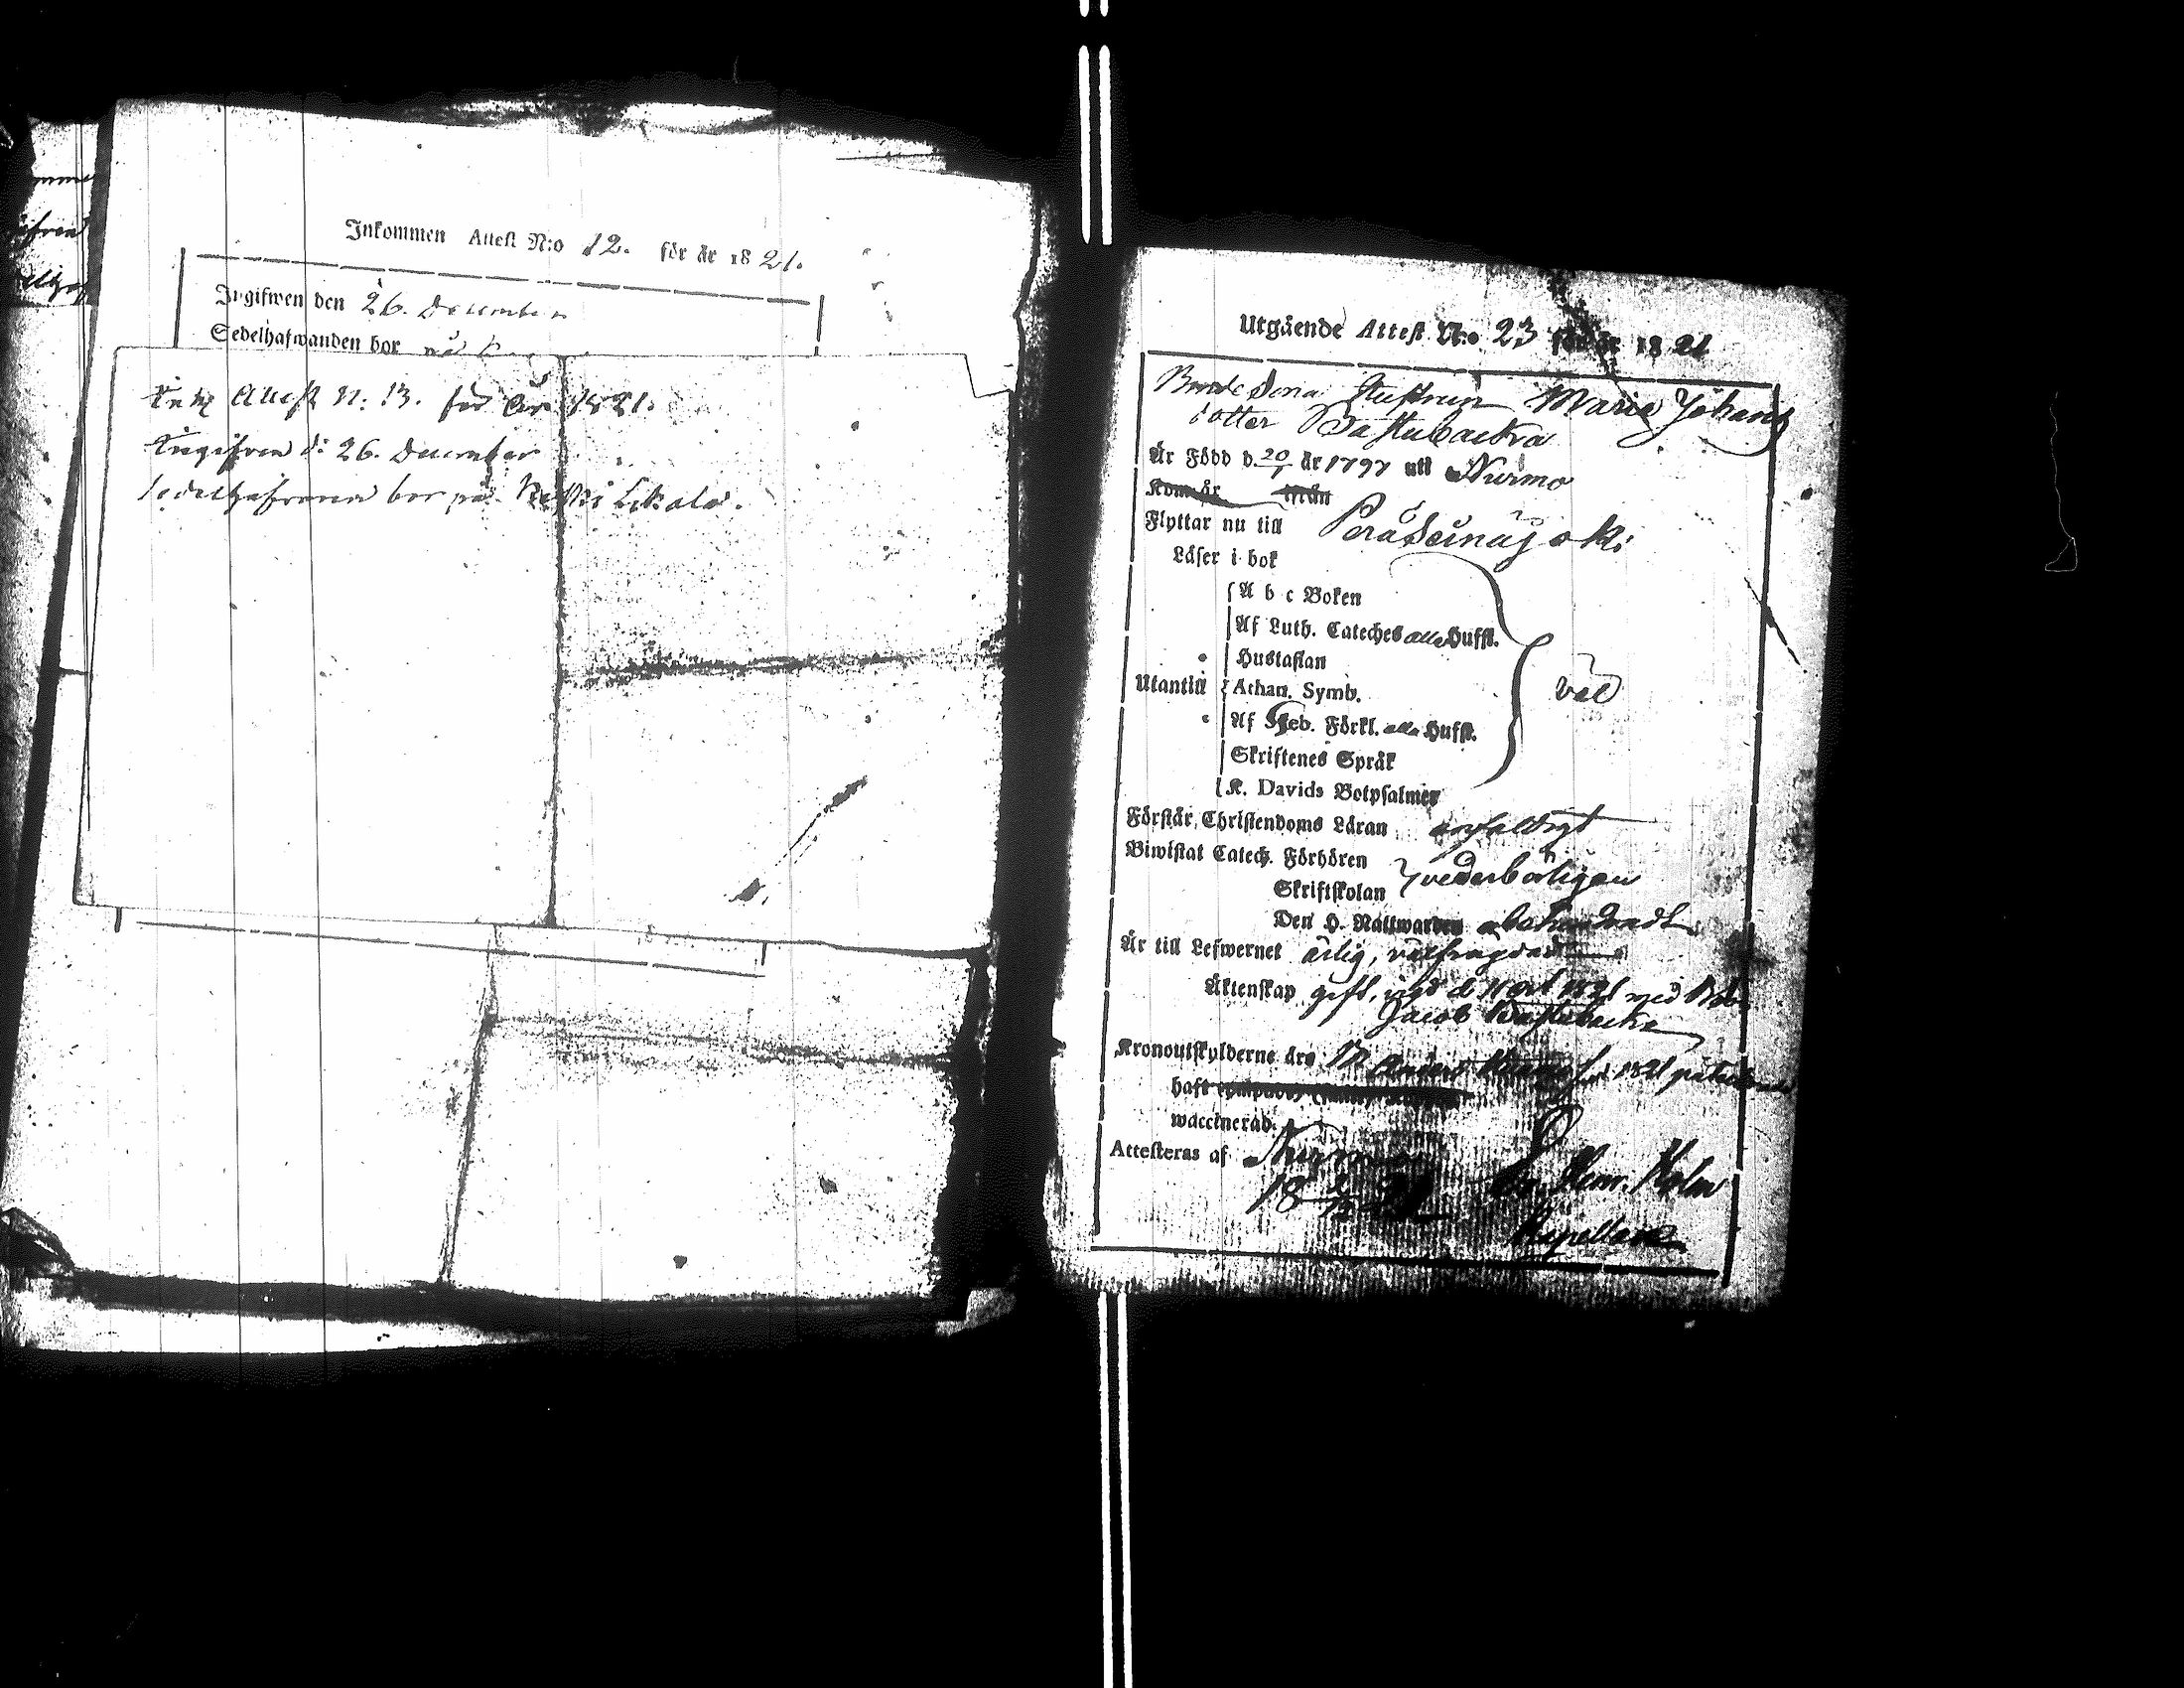 Inkommen Attest N:o 12. för år 1821.
Ingifwen den 26. December
Sedelhafwanden bor på
Attest N: 13. för År 1821.
Ingifven d: 26. December
Sedelhafvanden bor på
Utgående Attest N:o 23 för år 1821
Bonde Sona Hustrun Maria Johans
dotter Bastubacka
Är Född d. 20/1 år 1797 uti Nurmo
Kom år ifrån
Flyttar nu till Peråseinäjoki
Läser i bok
A b c Boken
Af Luth. Cateches alla Hufst.
Hustaflan
Utantill Athan. Symb.
Af Förkl. alla Hufst.
Skriftenes Språk
K. Davids Botpsalmer
väl
Förstår Christendoms Läran enfaldigt
Biwistat Catech. Förhören
Skriftskolan vederbörligen
Den H. Nattwarden obehindradt
Är till Lefwernet ärlig, välfrägdad
Äktenskap gift, vigd d. 11 1821 med
Jacob Bastubacka
Kronoutskylderne äro för 1821
haft
waccinerad.
Attesteras af Nurmo
18 21 Holm
Kapellan